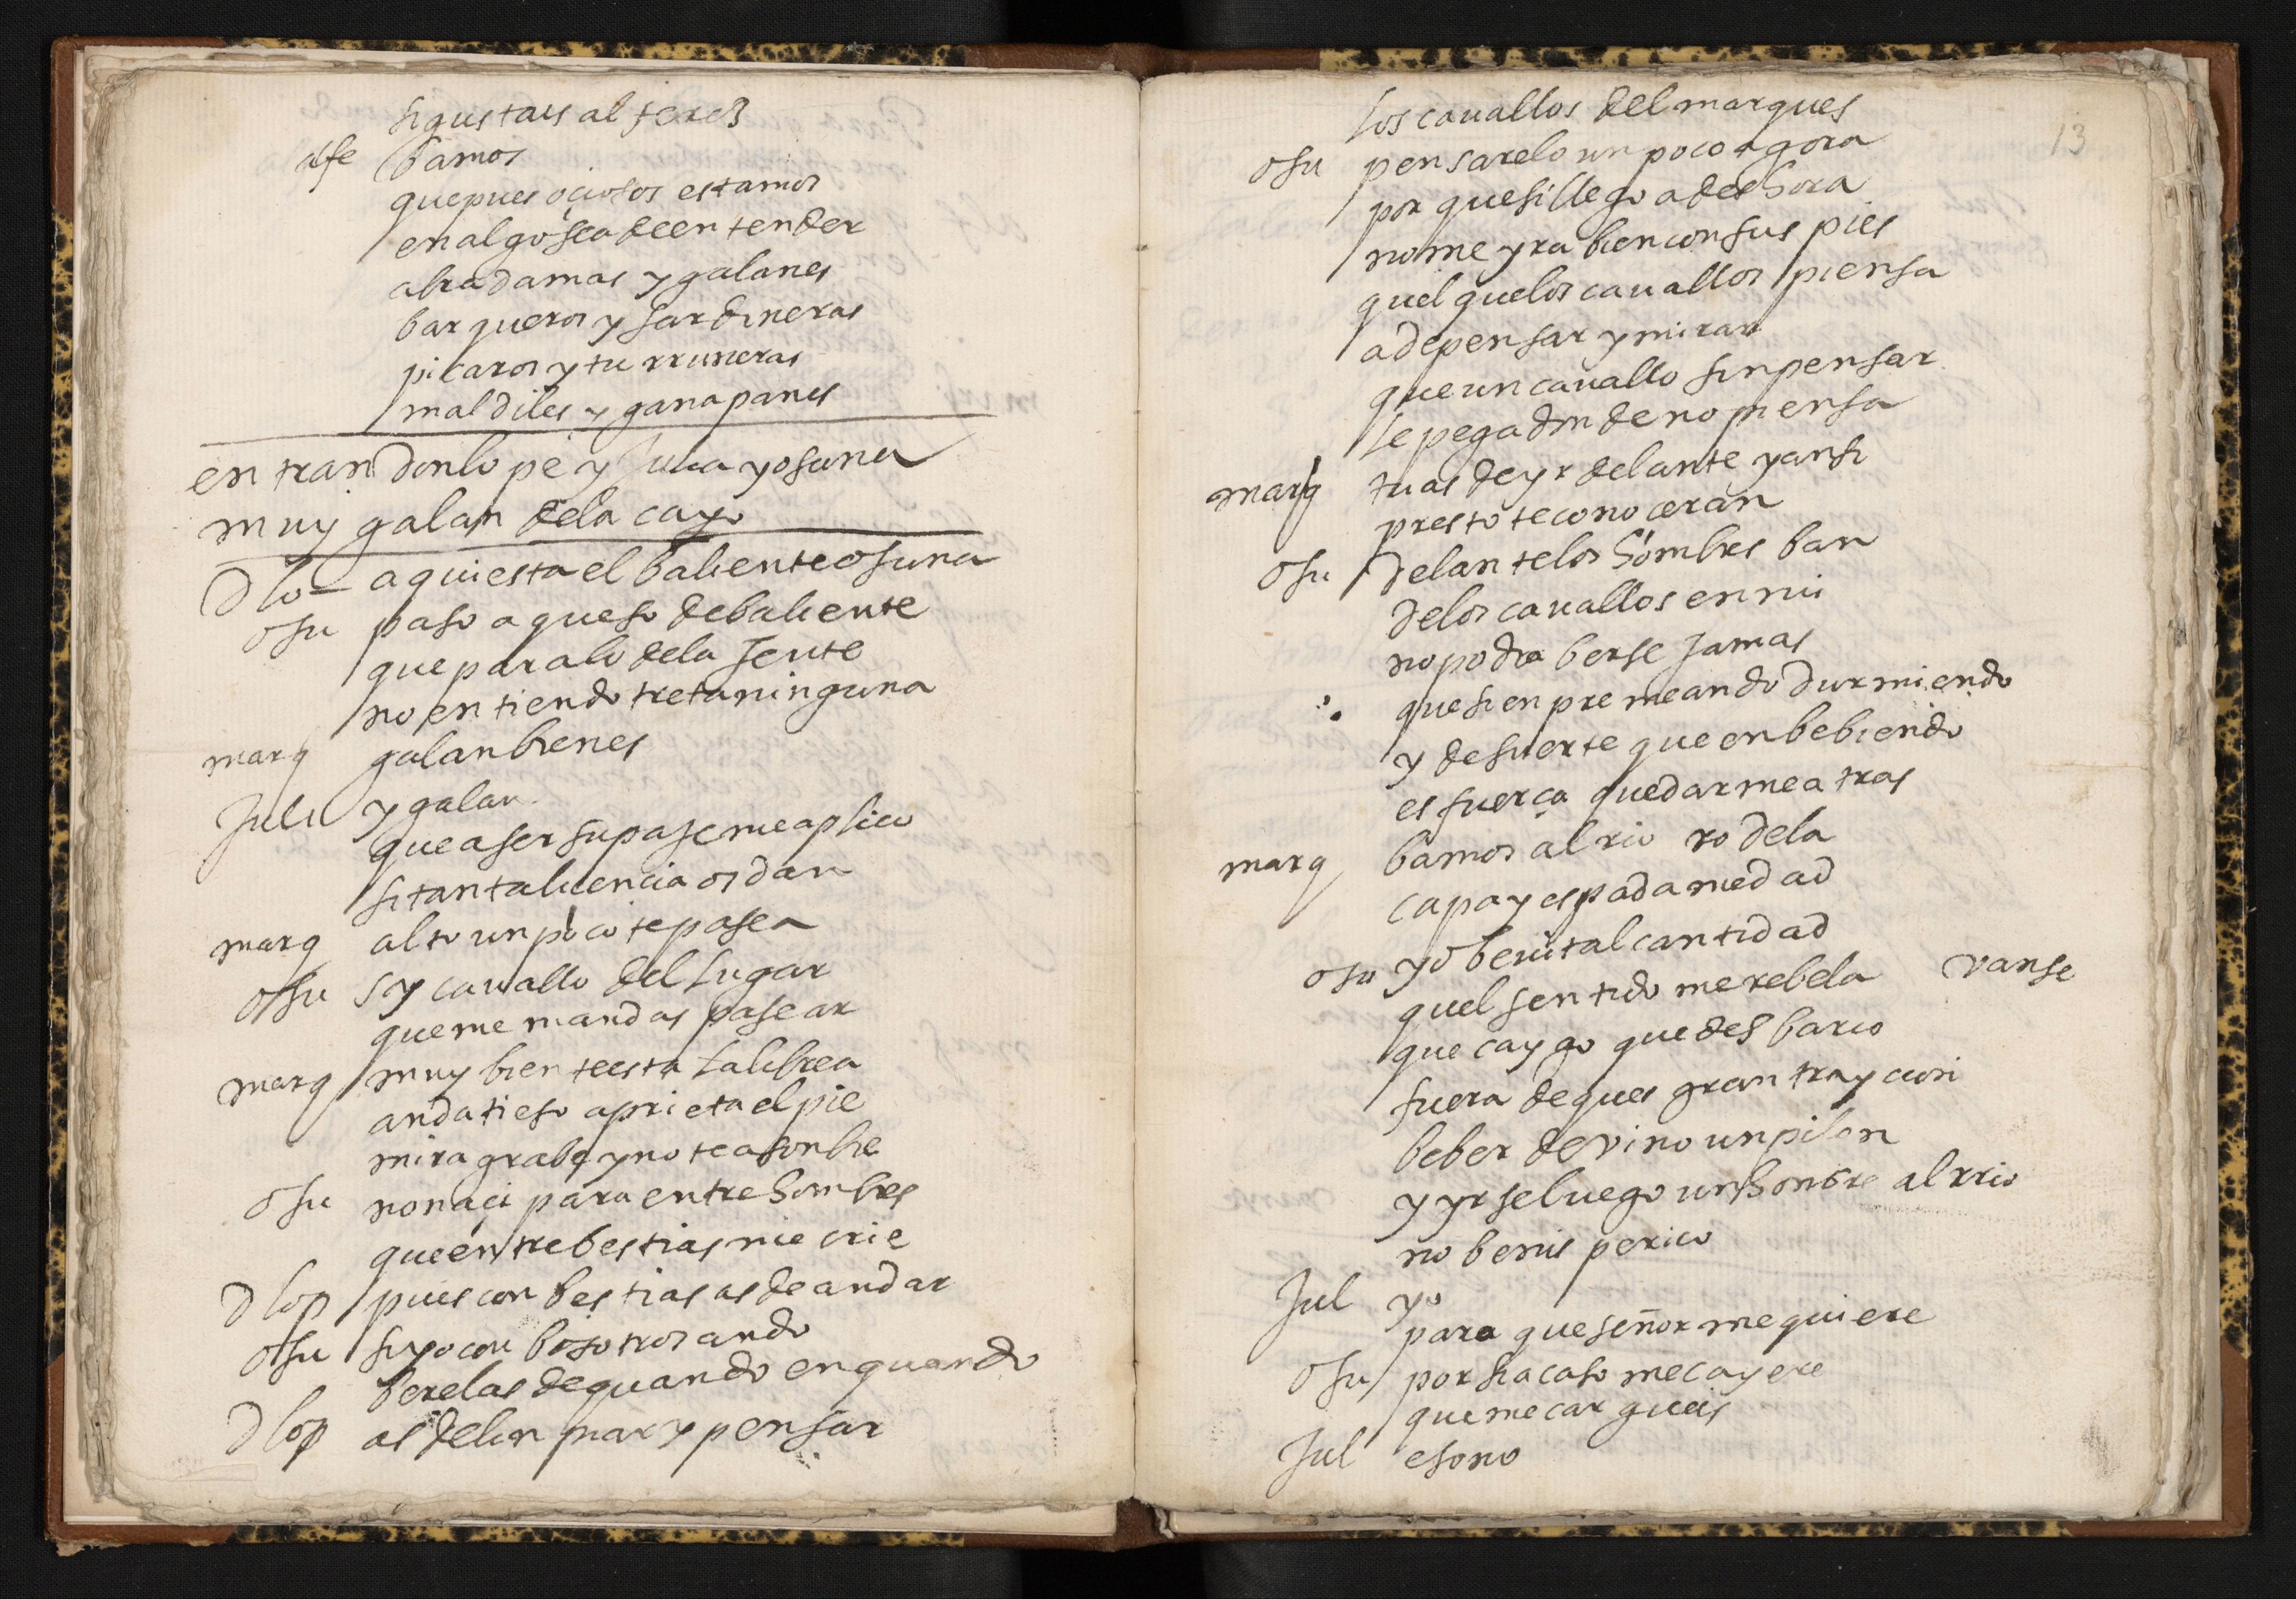 si gustais alferez
alfe bamos
que pues oçiosos estamos
en algo sea de entender
abra damas y galanes
barqueros y sardineras
picaros y turruneras
maldiles y ganapanes
entran don lope y Julia y osuna
muy galan de la cayo
D lo aqui esta el baliente osuna
osu paso aqueso de baliente
que para lo de la Jente
no entiendo treta ninguna
marq galan bienes
Juli y galan
que a ser su paje me aplico
si tanta licencia os dan
marq alto un poco te pasea
osu soy cauallo del lugar
que me mandas pasear
marq muy bien te esta la librea
anda tieso aprieta el pie
mira grabe y no te asonbre
osu no naçi para entre hombres
que entre bestias me crie
D lop pues con bestias as de andar
osu si yo con bosotros ando
berelas de quando en quando
D lop as de linpiar y pensar
los cauallos del marques
13
osu pensarelo un poco agora
porque si llego a deshora
no me yra bien con sus pies
quel que los cauallos piensa
a de pensar y mirar
que un cauallo sin pensar
le pega donde no piensa
marq tu as de yr delante y ansi
presto te conoceran
osu delante los hombres ban
de los cauallos en mi
no podra berse Jamas
que sienpre me ando durmiendo
y de suerte que en bebiendo
es fuerça quedarme atras
marq bamos al rio rodela
capa y espada me dad
osu yo bebi tal cantidad
quel sentido me rebela vanse
que caygo que desbario
fuera de ques gran traycion
beber de vino un pilon
y yrse luego un honbre al rrio
no benis perico
Jul yo
para que señor me quiere
osu por si acaso me cayere
que me cargueis
Jul eso no